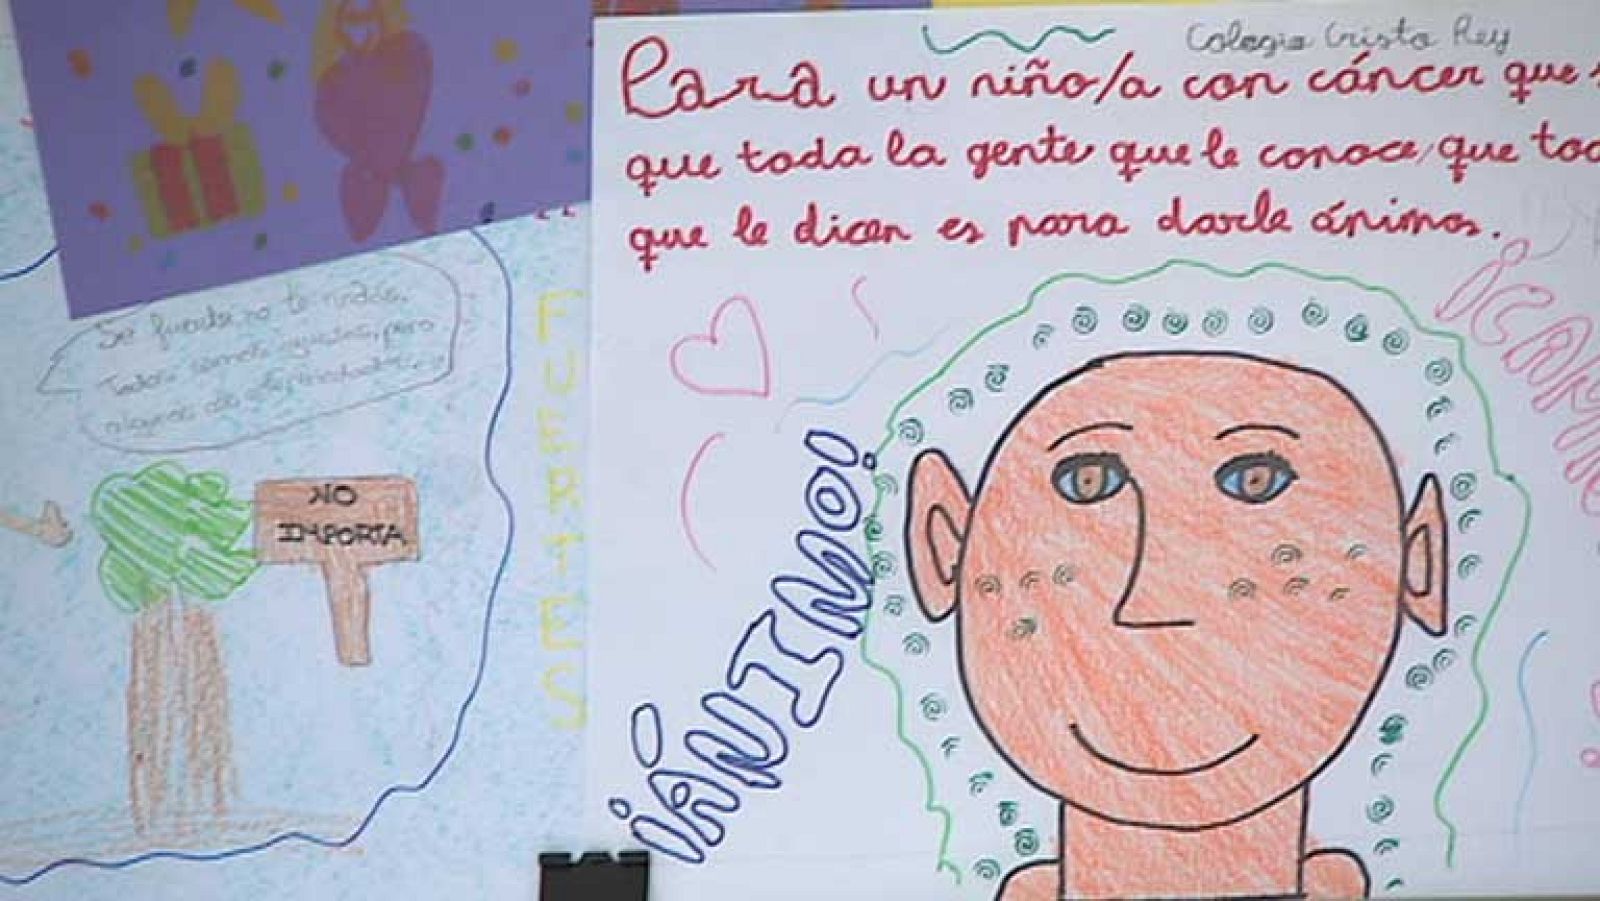 Colegio Cristo Rey
Para un niño/a con cáncer que
que toda la gente que le conoce, que
que le dicen es para darle ánimos.
Se fuerte, no te rindas.
Todos somos iguales, pero
algunos
NO
IMPORTA
FUERTES
¡ÁNIMO!